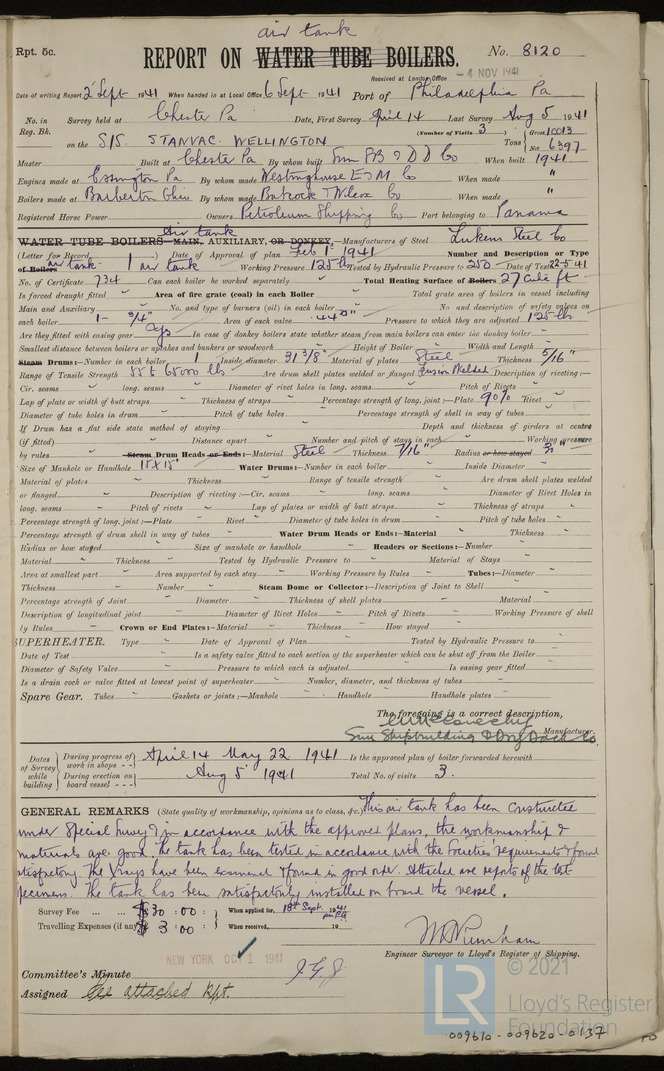 air tank
Rpt. 5c.
REPORT ON WATER TUBE BOILERS. No. 8120
Received at London Office - 4 NOV 1941
Date of writing Report 2 Sept 1941 When handed in at Local Office 6 Sept 1941 Port of Philadelphia Pa
No. in Reg. Bk. Survey held at Chester Pa Date, First Survey April 14 Last Survey Aug 5 1941
(Number of Visits 3) Gross 10013
on the S/S. STANVAC WELLINGTON Tons Net 6397
Master Built at Chester Pa By whom built Sun SB & DD Co When built 1941
Engines made at Essington Pa By whom made Westinghouse E & M Co When made "
Boilers made at Barberton Ohio By whom made Babcock & Wilcox Co When made "
Registered Horse Power Owners Petroleum Shipping Co Port belonging to Panama
Air tank
WATER TUBE BOILERS—MAIN, AUXILIARY, OR DONKEY.—Manufacturers of Steel Lukens Steel Co
(Letter for Record ) Date of Approval of plan Feb 1 1941 Number and Description or Type
of Boilers air tank 1 air tank Working Pressure 125 lbs Tested by Hydraulic Pressure to 250 Date of Test 22-5-41
No. of Certificate 734 Can each boiler be worked separately Total Heating Surface of Boilers 27 cubic ft
Is forced draught fitted Area of fire grate (coal) in each Boiler Total grate area of boilers in vessel including
Main and Auxiliary No. and type of burners (oil) in each boiler No. and description of safety valves on
each boiler 1 - 3/4" Area of each valve .44" Pressure to which they are adjusted 125 lbs
Are they fitted with easing gear Yes In case of donkey boilers state whether steam from main boilers can enter the donkey boiler
Smallest distance between boilers or uptakes and bunkers or woodwork Height of Boiler Width and Length
Steam Drums:—Number in each boiler 1 Inside diameter 31 3/8" Material of plates Steel Thickness 5/16"
Range of Tensile Strength 55 to 65000 lbs Are drum shell plates welded or flanged Fusion Welded Description of riveting:—
Cir. seams long. seams Diameter of rivet holes in long. seams Pitch of Rivets
Lap of plate or width of butt straps Thickness of straps Percentage strength of long. joint:—Plate 90% Rivet
Diameter of tube holes in drum Pitch of tube holes Percentage strength of shell in way of tubes
If Drum has a flat side state method of staying Depth and thickness of girders at centre
(if fitted) Distance apart Number and pitch of stays in each Working pressure
by rules Steam Drum Heads or Ends:—Material Steel Thickness 7/16" Radius or how stayed 30"
Size of Manhole or Handhole 11 x 15" Water Drums:—Number in each boiler Inside Diameter
Material of plates Thickness Range of tensile strength Are drum shell plates welded
or flanged Description of riveting:—Cir. seams long. seams Diameter of Rivet Holes in
long. seams Pitch of rivets Lap of plates or width of butt straps Thickness of straps
Percentage strength of long. joint:—Plate Rivet Diameter of tube holes in drum Pitch of tube holes
Percentage strength of drum shell in way of tubes Water Drum Heads or Ends:—Material Thickness
Radius or how stayed Size of manhole or handhole Headers or Sections:—Number
Material Thickness Tested by Hydraulic Pressure to Material of Stays
Area at smallest part Area supported by each stay Working Pressure by Rules Tubes:—Diameter
Thickness Number Steam Dome or Collector:—Description of Joint to Shell
Percentage strength of Joint Diameter Thickness of shell plates Material
Description of longitudinal joint Diameter of Rivet Holes Pitch of Rivets Working Pressure of shell
by Rules Crown or End Plates:—Material Thickness How stayed
SUPERHEATER. Type Date of Approval of Plan Tested by Hydraulic Pressure to
Date of Test Is a safety valve fitted to each section of the superheater which can be shut off from the Boiler
Diameter of Safety Valve Pressure to which each is adjusted Is easing gear fitted
Is a drain cock or valve fitted at lowest point of superheater Number, diameter, and thickness of tubes
Spare Gear. Tubes Gaskets or joints:—Manhole Handhole Handhole plates
The foregoing is a correct description,
Sun Shipbuilding & Dry Dock Co Manufacturer.
Dates of Survey while building
During progress of work in shops - - April 14 May 22 1941 Is the approved plan of boiler forwarded herewith
During erection on board vessel - - - Aug 5 1941 Total No. of visits 3.
GENERAL REMARKS (State quality of workmanship, opinions as to class, &c.) This air tank has been constructed
under Special Survey & in accordance with the approved plans, the workmanship &
materials are good. The tank has been tested in accordance with the Societies' requirements & found
satisfactory. The Xrays have been examined & found in good order. Attached are reports of the test
specimens. The tank has been satisfactorily installed on board the vessel.
Survey Fee ... ... $30 : 00 : When applied for, 18th Sept. 1941
Travelling Expenses (if any) $ 3 : 00 : When received, 19
Engineer Surveyor to Lloyd's Register of Shipping.
NEW YORK OCT 1 1941
Committee's Minute
Assigned See attached Rpt.
© 2021
LR
Lloyd's Register
Foundation
009610-009620-0137